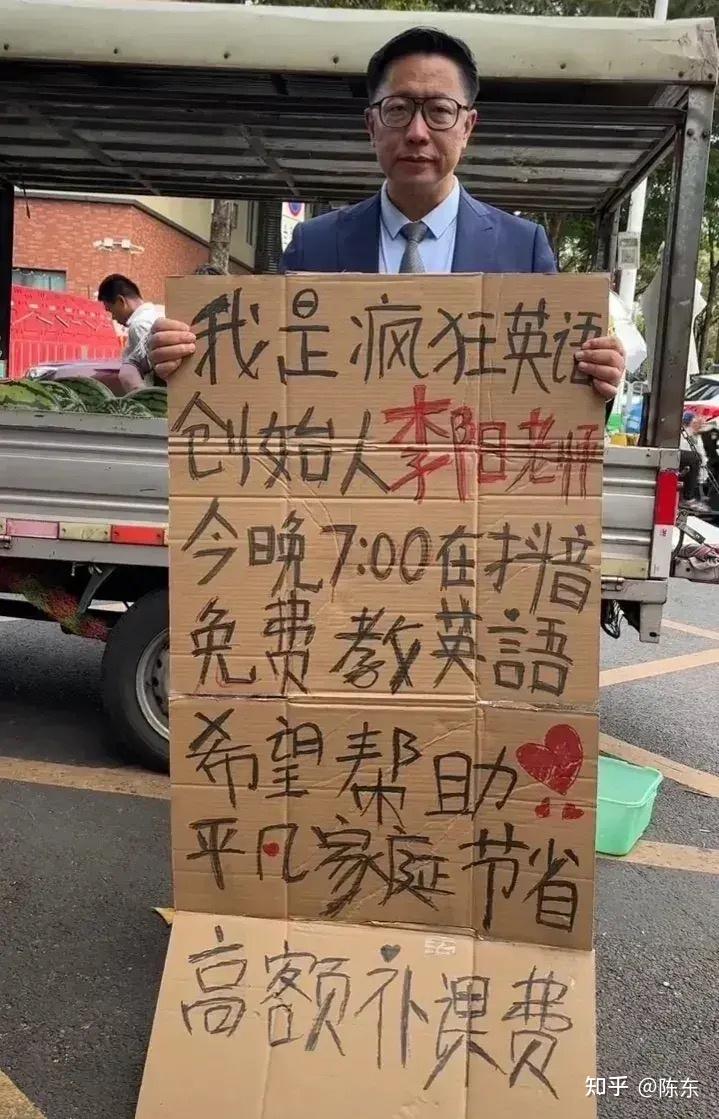 我是疯狂英语
创始人李阳老师
今晚7:00在抖音
免费教英語
希望帮助
平凡家庭节省
高额补课费
知乎 @陈东